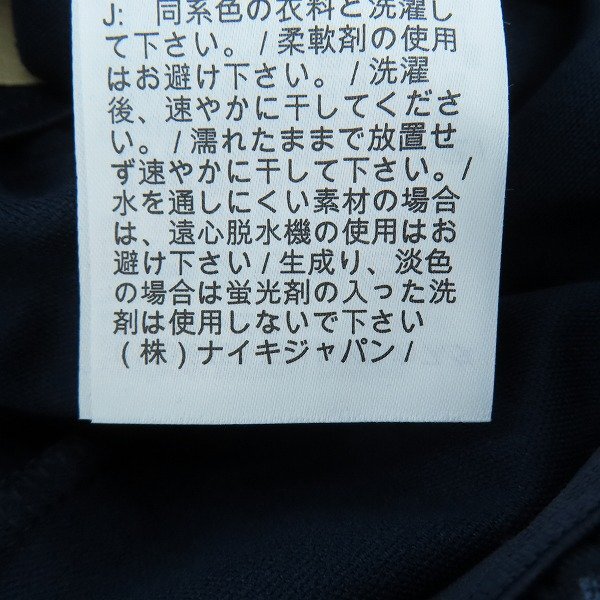 J: 同系色の衣料と洗濯し
て下さい。/ 柔軟剤の使用
はお避け下さい。/ 洗濯
後、速やかに干してくださ
い。/ 濡れたままで放置せ
ず速やかに干して下さい。/
水を通しにくい素材の場合
は、遠心脱水機の使用はお
避け下さい / 生成り、淡色
の場合は蛍光剤の入った洗
剤は使用しないで下さい
(株)ナイキジャパン /